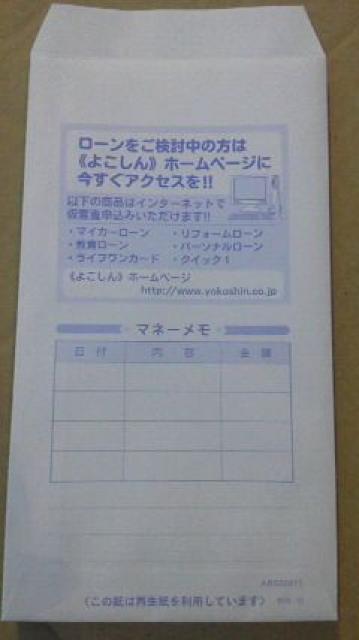 ローンをご検討中の方は
《よこしん》ホームページに
今すぐアクセスを!!
以下の商品はインターネットで
仮審査申込みいただけます!!
・マイカーローン ・リフォームローン
・教育ローン ・パーソナルローン
・ライフワンカード ・クイック1
《よこしん》ホームページ
http://www.yokoshin.co.jp
マネーメモ
日付 内容 金額
〈この紙は再生紙を利用しています〉